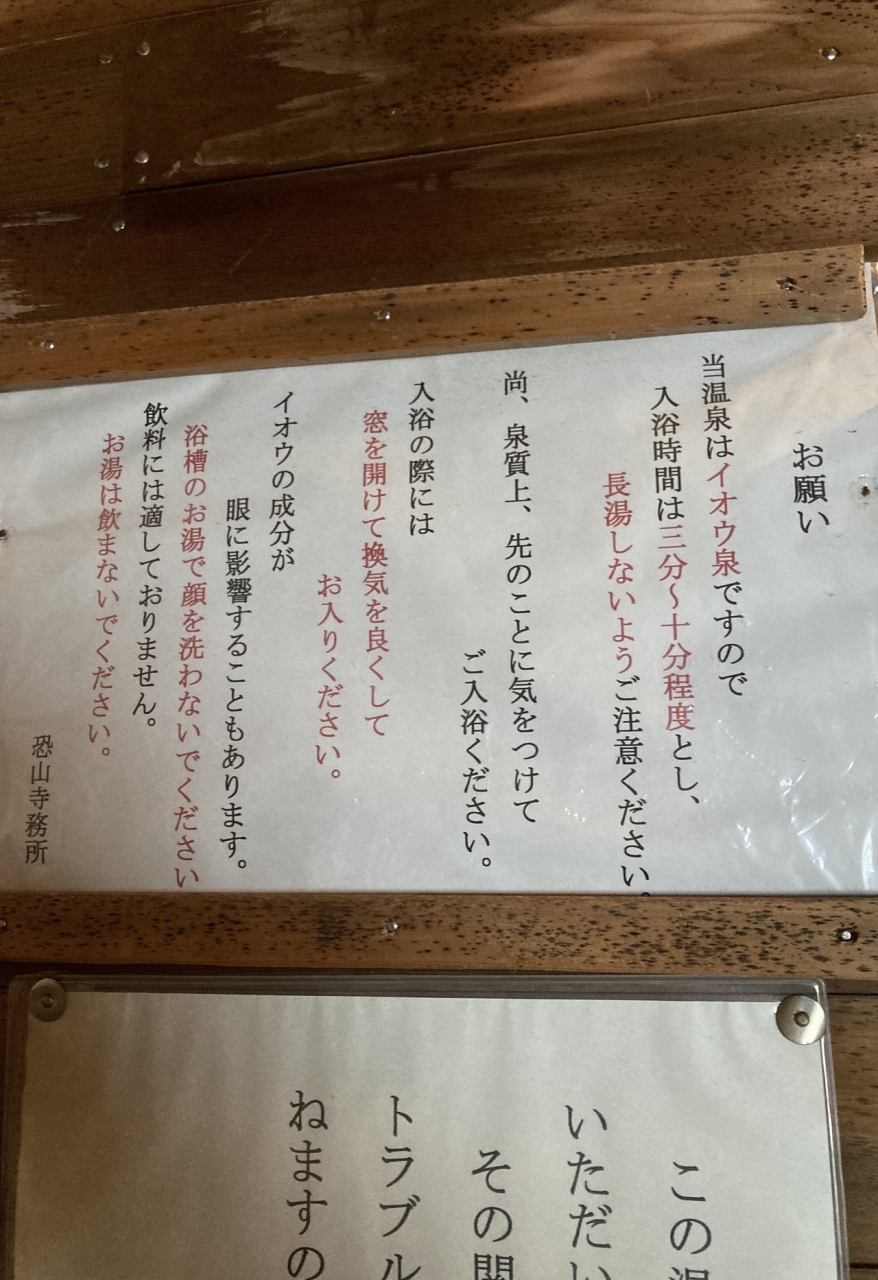 お願い
当温泉はイオウ泉ですので
入浴時間は三分〜十分程度とし、
長湯しないようご注意ください。
尚、泉質上、先のことに気をつけて
ご入浴ください。
入浴の際には
窓を開けて換気を良くして
お入りください。
イオウの成分が
眼に影響することもあります。
浴槽のお湯で顔を洗わないでください
飲料には適しておりません。
お湯は飲まないでください。
恐山寺務所
この
いただい
その
トラブル
ねますの